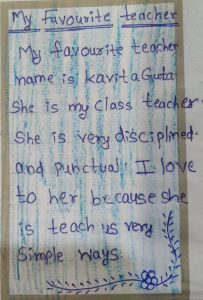 My Favourite teacher
My favourite teacher
name is kavita Guta.
She is my class teacher.
She is very disciplined.
and punctual. I love
to her because she
is teach us very
Simple ways.